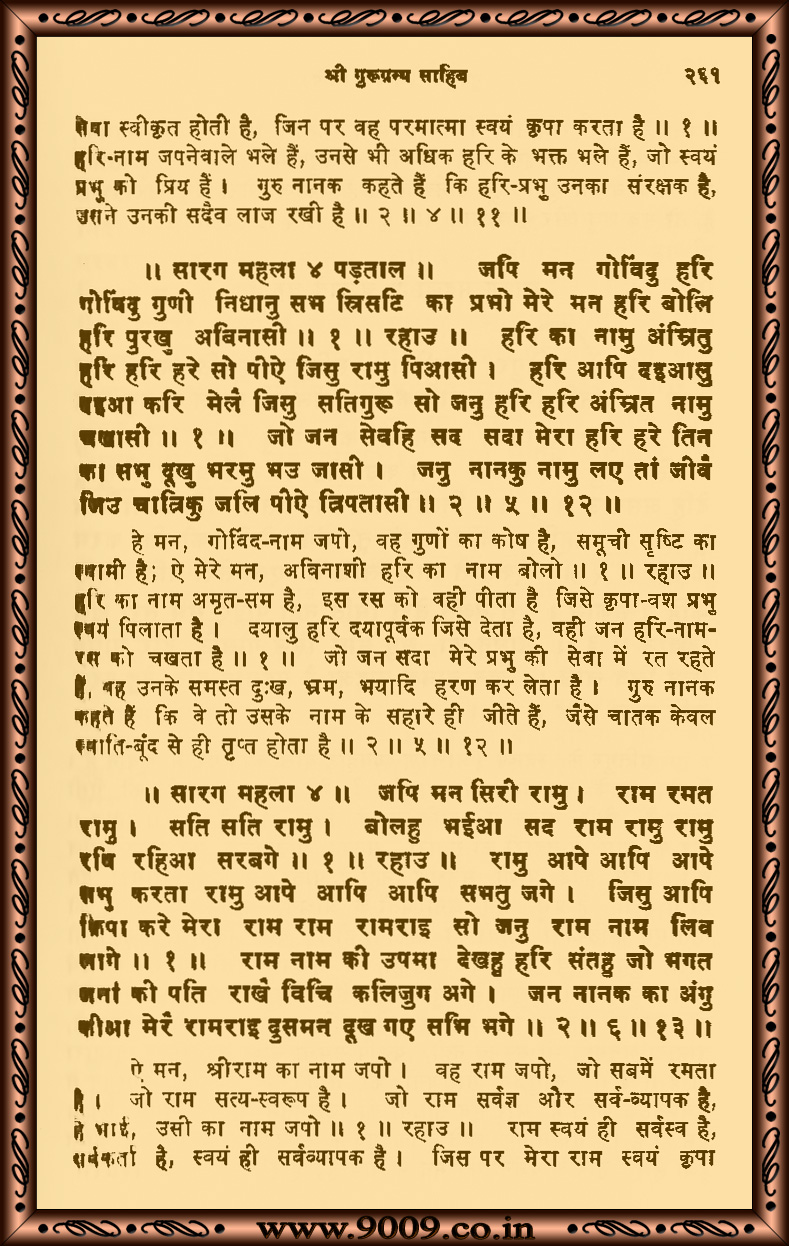 श्री गुरुग्रन्थ साहिब २६१
सेवा स्वीकृत होती है, जिन पर वह परमात्मा स्वयं कृपा करता है ॥ १ ॥
हरि-नाम जपनेवाले भले हैं, उनसे भी अधिक हरि के भक्त भले हैं, जो स्वयं
प्रभु को प्रिय हैं । गुरु नानक कहते हैं कि हरि-प्रभु उनका संरक्षक है,
उसने उनकी सदैव लाज रखी है ॥ २ ॥ ४ ॥ ११ ॥
॥ सारग महला ४ पड़ताल ॥ जपि मन गोविंदु हरि
गोविंदु गुणी निधानु सभ स्रिसटि का प्रभो मेरे मन हरि बोलि
हरि पुरखु अबिनासी ॥ १ ॥ रहाउ ॥ हरि का नामु अंम्रितु
हरि हरि हरे सो पीऐ जिसु रामु पिआसी । हरि आपि दइआलु
दइआ करि मेलै जिसु सतिगुरू सो जनु हरि हरि अंम्रित नामु
चखासी ॥ १ ॥ जो जन सेवहि सद सदा मेरा हरि हरे तिन
का सभु दूखु भरमु भउ जासी । जनु नानकु नामु लए तां जीवै
जिउ चात्रिकु जलि पीऐ त्रिपतासी ॥ २ ॥ ५ ॥ १२ ॥
हे मन, गोविंद-नाम जपो, वह गुणों का कोष है, समूची सृष्टि का
स्वामी है; ऐ मेरे मन, अविनाशी हरि का नाम बोलो ॥ १ ॥ रहाउ ॥
हरि का नाम अमृत-सम है, इस रस को वही पीता है जिसे कृपा-वश प्रभु
स्वयं पिलाता है । दयालु हरि दयापूर्वक जिसे देता है, वही जन हरि-नाम-
रस को चखता है ॥ १ ॥ जो जन सदा मेरे प्रभु की सेवा में रत रहते
हैं, वह उनके समस्त दुःख, भ्रम, भयादि हरण कर लेता है । गुरु नानक
कहते हैं कि वे तो उसके नाम के सहारे ही जीते हैं, जैसे चातक केवल
स्वाति-बूंद से ही तृप्त होता है ॥ २ ॥ ५ ॥ १२ ॥
॥ सारग महला ४ ॥ जपि मन सिरी रामु । राम रमत
रामु । सति सति रामु । बोलहु भईआ सद राम रामु रामु
रवि रहिआ सरबगे ॥ १ ॥ रहाउ ॥ रामु आपे आपि आपे
सभु करता रामु आपे आपि आपि सभतु जगे । जिसु आपि
क्रिपा करे मेरा राम राम रामराइ सो जनु राम नाम लिव
लागे ॥ १ ॥ राम नाम की उपमा देखहु हरि संतहु जो भगत
जनां की पति राखै विचि कलिजुग अगे । जन नानक का अंगु
कीआ मेरै रामराइ दुसमन दूख गए सभि भगे ॥ २ ॥ ६ ॥ १३ ॥
ऐ मन, श्रीराम का नाम जपो । वह राम जपो, जो सबमें रमता
है । जो राम सत्य-स्वरूप है । जो राम सर्वज्ञ और सर्व-व्यापक है,
हे भाई, उसी का नाम जपो ॥ १ ॥ रहाउ ॥ राम स्वयं ही सर्वस्व है,
सर्वकर्ता है, स्वयं ही सर्वव्यापक है । जिस पर मेरा राम स्वयं कृपा
www.9009.co.in